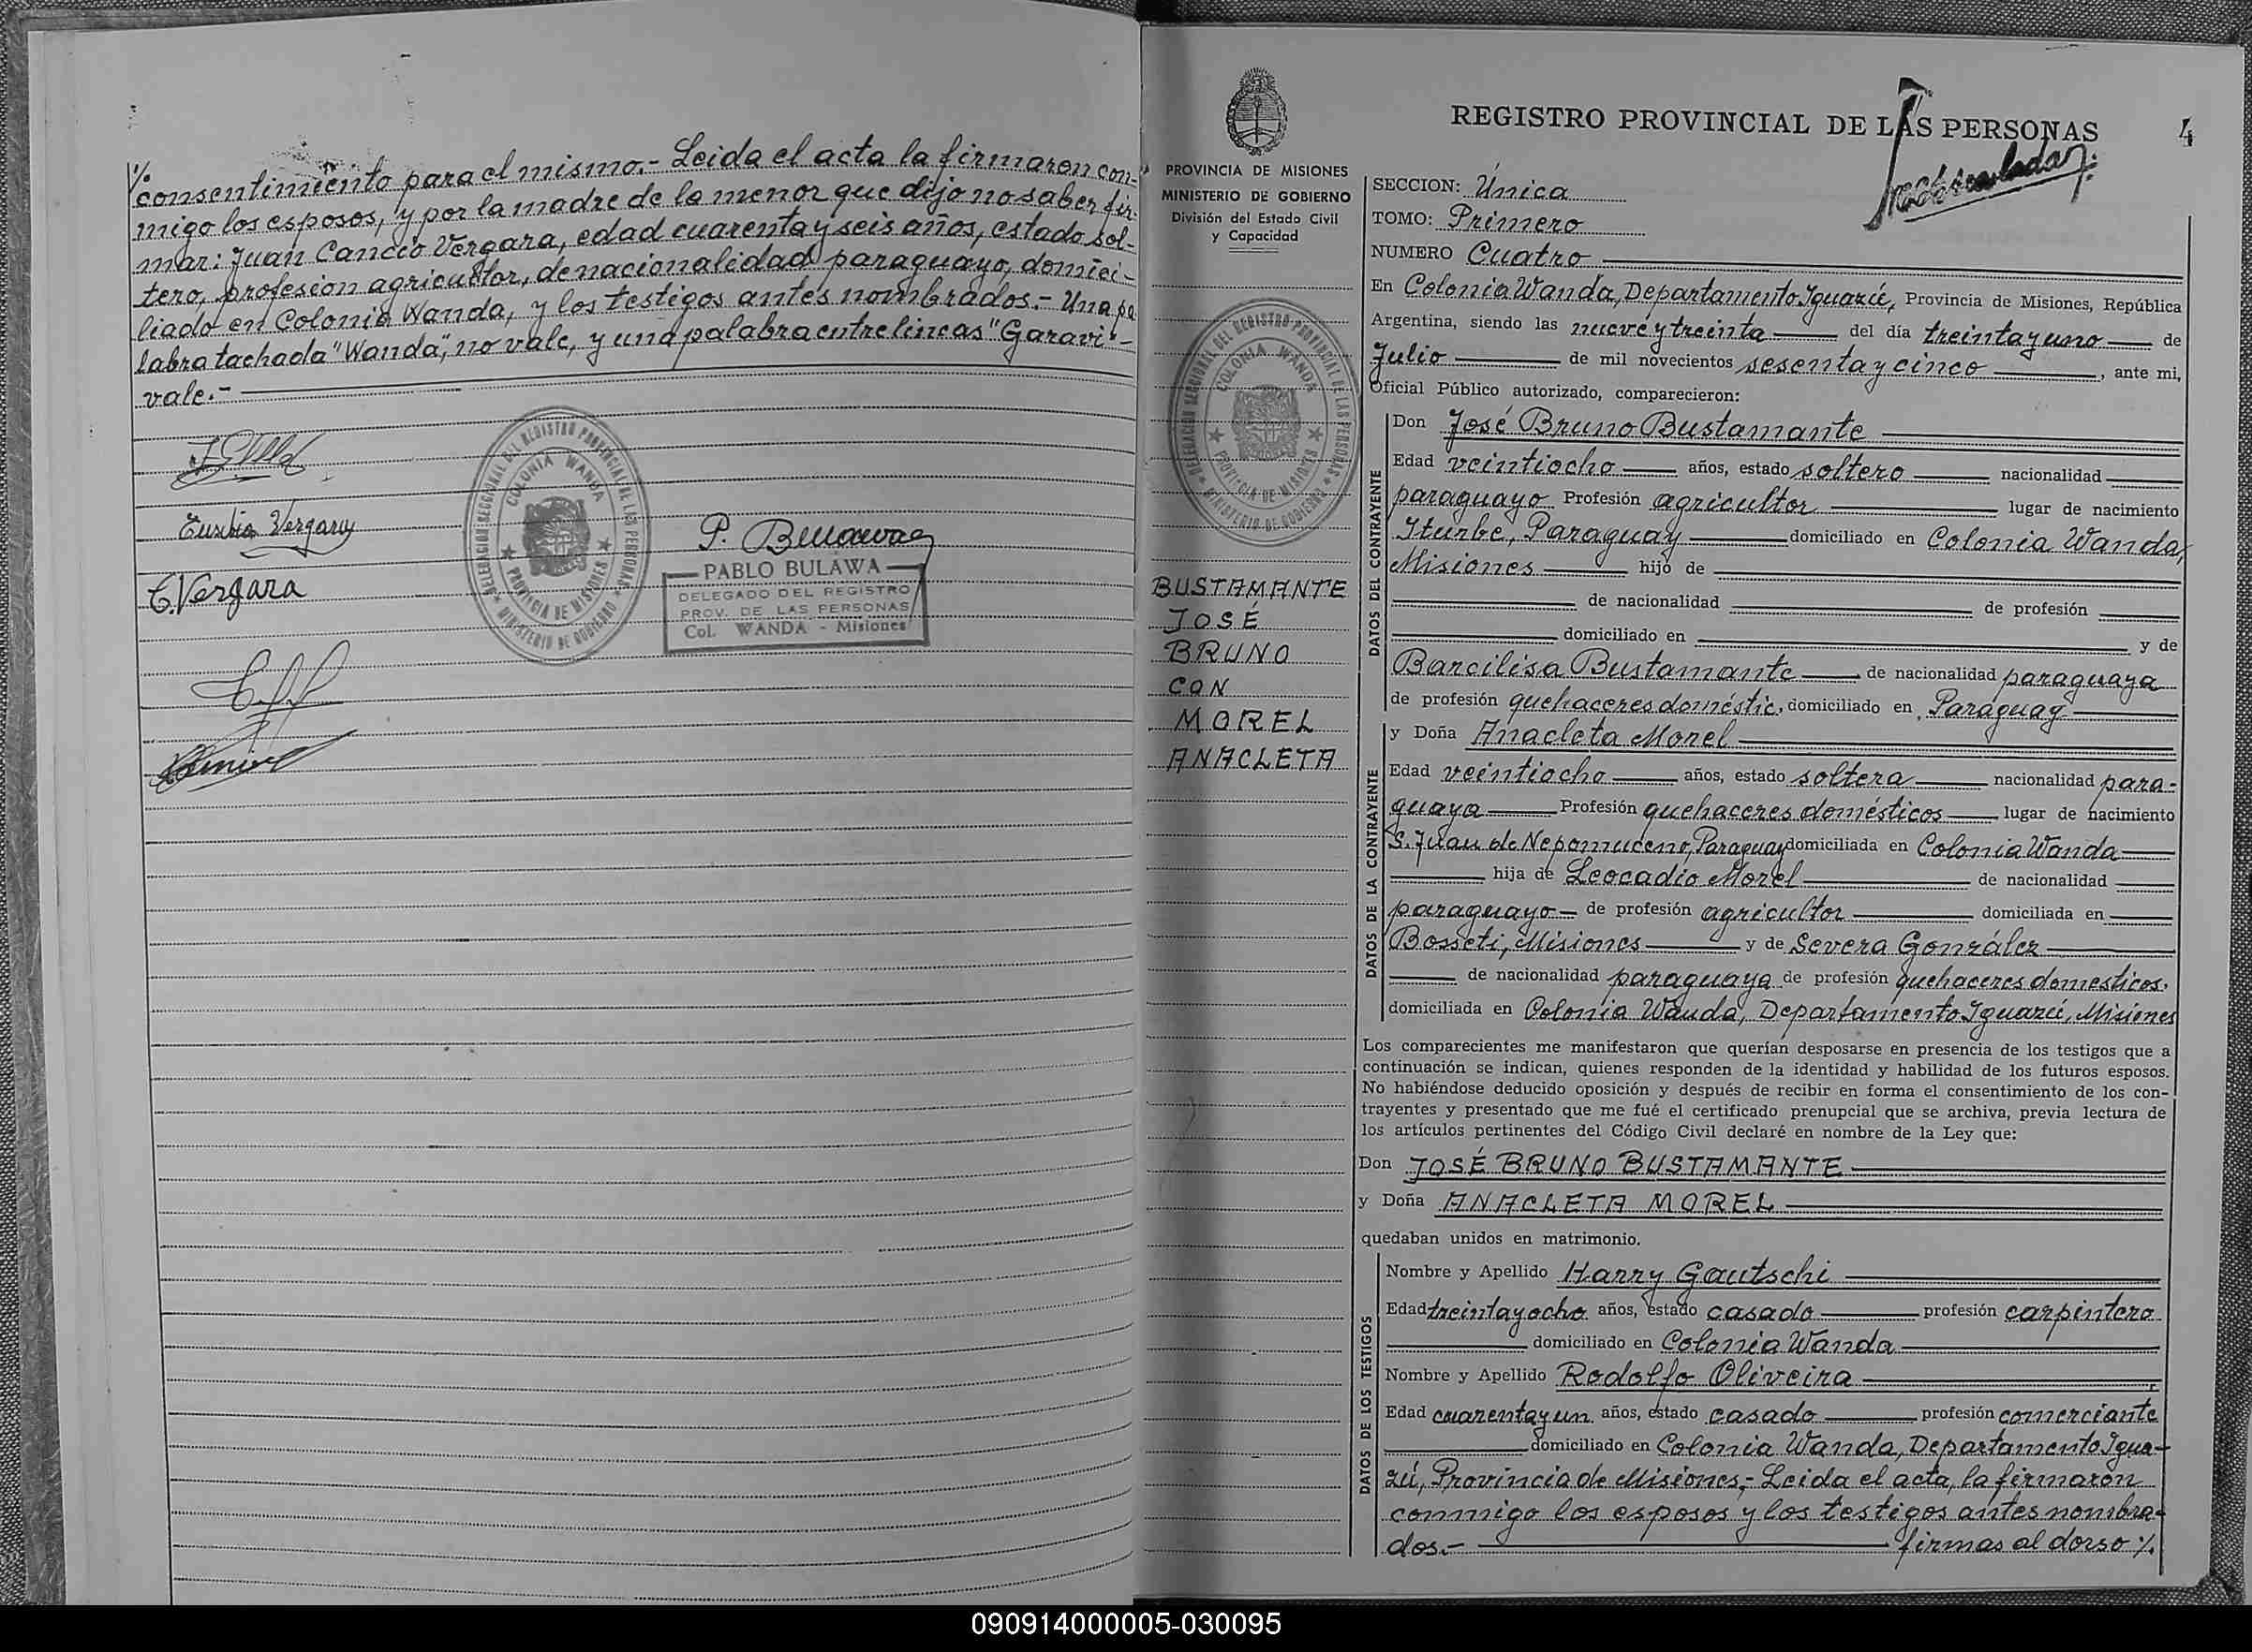 %
consentimiento para el mismo.- Leida el acta la firmaron con-
migo los esposos, y por la madre de la menor que dijo no saber fir-
mar: Juan Cancio Vergara, edad cuarenta y seis años, estado sol-
tero, profesion agricultor, de nacionalidad paraguayo, domici-
liado en Colonia Wanda, y los testigos antes nombrados.- Una pa
labra tachada "Wanda", no vale, y una palabra entre lineas "Garavi"-
vale.-
Eusebio Vergara
E. Vergara
DELEGACION SECCIONAL DEL REGISTRO PROVINCIAL DE LAS PERSONAS
COLONIA WANDA
PROVINCIA DE MISIONES
MINISTERIO DE GOBIERNO
P. Bulawa
PABLO BULAWA
DELEGADO DEL REGISTRO
PROV. DE LAS PERSONAS
Col. WANDA - Misiones
PROVINCIA DE MISIONES
MINISTERIO DE GOBIERNO
División del Estado Civil
y Capacidad
DELEGACION SECCIONAL DEL REGISTRO PROVINCIAL DE LAS PERSONAS
COLONIA WANDA
PROVINCIA DE MISIONES
MINISTERIO DE GOBIERNO
BUSTAMANTE
JOSÉ
BRUNO
CON
MOREL
ANACLETA
REGISTRO PROVINCIAL DE LAS PERSONAS
4
SECCION: Única
TOMO: Primero
NUMERO Cuatro
En Colonia Wanda, Departamento Iguazú, Provincia de Misiones, República
Argentina, siendo las nueve y treinta del día treinta y uno de
Julio de mil novecientos sesenta y cinco, ante mi,
Oficial Público autorizado, comparecieron:
DATOS DEL CONTRAYENTE
Don José Bruno Bustamante
Edad veintiocho años, estado soltero nacionalidad
paraguayo Profesión agricultor lugar de nacimiento
Iturbe, Paraguay domiciliado en Colonia Wanda,
Misiones hijo de
de nacionalidad de profesión
domiciliado en y de
Barcilisa Bustamante de nacionalidad paraguaya
de profesión quehaceres doméstic. domiciliado en Paraguay
DATOS DE LA CONTRAYENTE
y Doña Anacleta Morel
Edad veintiocho años, estado soltera nacionalidad para-
guaya Profesión quehaceres domésticos lugar de nacimiento
S. Juan de Nepomuceno, Paraguay domiciliada en Colonia Wanda
hija de Leocadio Morel de nacionalidad
paraguayo de profesión agricultor domiciliada en
Bosseti, Misiones y de Severa González
de nacionalidad paraguaya de profesión quehaceres domesticos.
domiciliada en Colonia Wanda, Departamento Iguazú, Misiones
Los comparecientes me manifestaron que querían desposarse en presencia de los testigos que a
continuación se indican, quienes responden de la identidad y habilidad de los futuros esposos.
No habiéndose deducido oposición y después de recibir en forma el consentimiento de los con-
trayentes y presentado que me fué el certificado prenupcial que se archiva, previa lectura de
los artículos pertinentes del Código Civil declaré en nombre de la Ley que:
Don JOSÉ BRUNO BUSTAMANTE
y Doña ANACLETA MOREL
quedaban unidos en matrimonio.
DATOS DE LOS TESTIGOS
Nombre y Apellido Harry Gautschi
Edad treinta y ocho años, estado casado profesión carpintero
domiciliado en Colonia Wanda
Nombre y Apellido Rodolfo Oliveira
Edad cuarenta y un años, estado casado profesión comerciante
domiciliado en Colonia Wanda, Departamento Igua-
zú, Provincia de Misiones.- Leida el acta, la firmaron
conmigo los esposos y los testigos antes nombra-
dos.- firmas al dorso %.
090914000005-030095